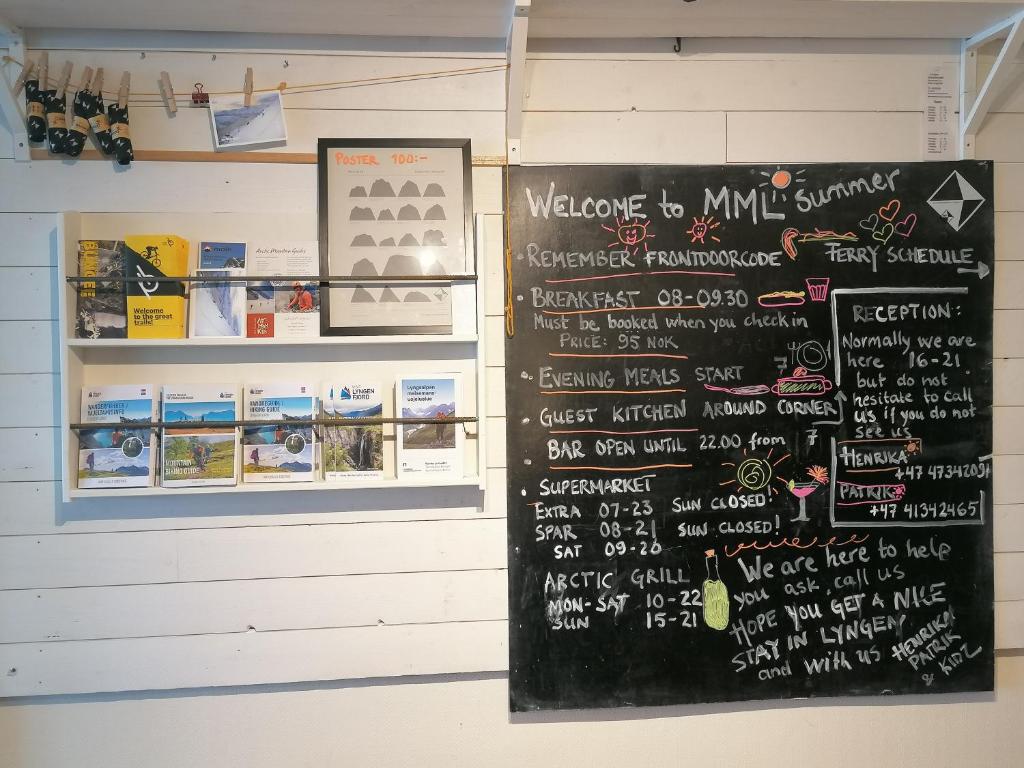 POSTER 100:-
Arctic Mountain Guides
Welcome
to the great
trails!
WANDERFÜHRER /
VANDREGUIDE /
HIKING GUIDE
MOUNTAIN
BIKING GUIDE
LYNGEN
FJORD
Lyngsalpen
WELCOME to MML summer
REMEMBER FRONTDOORCODE
FERRY SCHEDULE
BREAKFAST 08-09.30
Must be booked when you check in
PRICE: 95 NOK
EVENING MEALS START
7
GUEST KITCHEN AROUND CORNER
BAR OPEN UNTIL 22.00 from 7
SUPERMARKET
EXTRA 07-23 SUN CLOSED!
SPAR 08-21 SUN CLOSED!
SAT 09-20
ARCTIC GRILL
MON-SAT 10-22
SUN 15-21
RECEPTION:
Normally we are
here 16-21
but do not
hesitate to call
us if you do not
see us
HENRIKA
PATRIK
+47 41342465
We are here to help
you ask, call us
HOPE YOU GET A NICE
STAY IN LYNGEN
and with us HENRIKA
PATRIK
& KIDZ